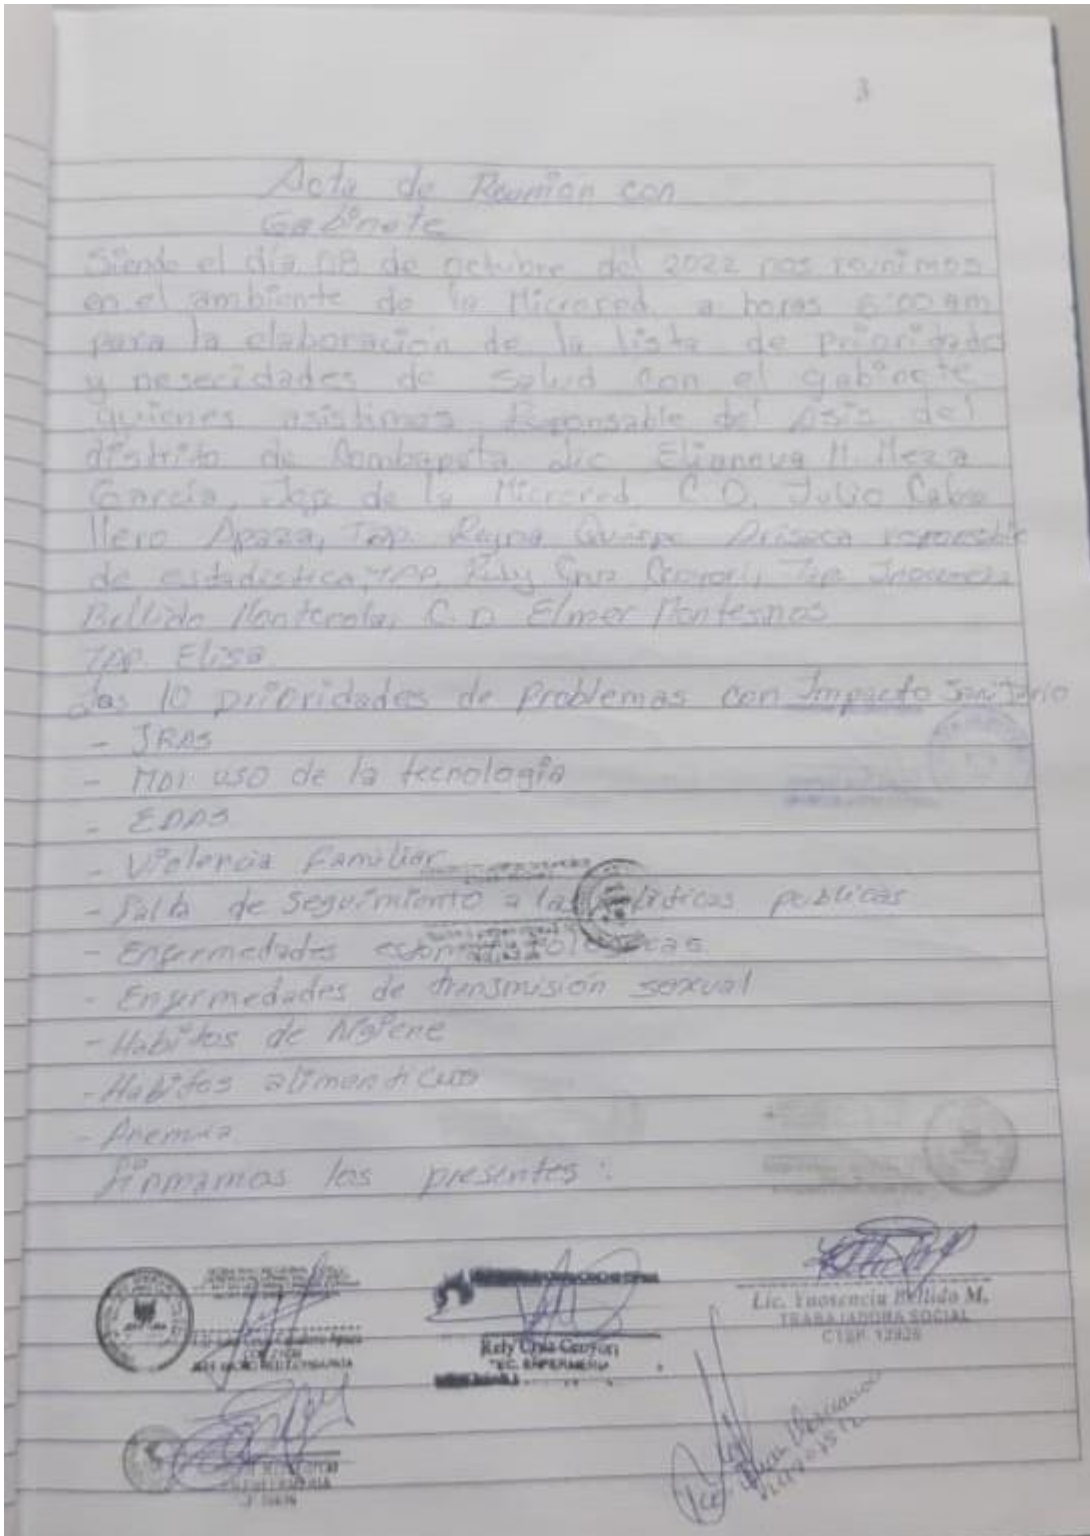 3
Acta de Reunión con
Gabinete
Siendo el día 08 de octubre del 2022 nos reunimos
en el ambiente de la Microred a horas 6:00 am
para la elaboración de la lista de prioridade
y nesecidades de salud con el gabinete
quienes asistimos Responsable del Asis del
distrito de Combapata Lic Elianova M. Meza
García, Jefe de la Microred C.D. Julio Caba
llero Apaza, Tap. Reyna Quispe responsable
de estadistica, TAP. Tap.
Bellido C.D. Elmer Montesinos
TAP. Elisa
Las 10 prioridades de Problemas con Impacto Sanitario
- IRAS
- Mal uso de la tecnología
- EDAS
- Violencia Familiar
- Falta de seguimiento a las políticas publicas
- Enfermedades estomatologicas.
- Enfermedades de transmisión sexual
- Habitos de higiene
- Habitos alimenticios
- Anemia
firmamos los presentes:
Lic. Bellido M.
TRABAJADORA SOCIAL
Caballero Apaza
TEC. ENFERMERIA